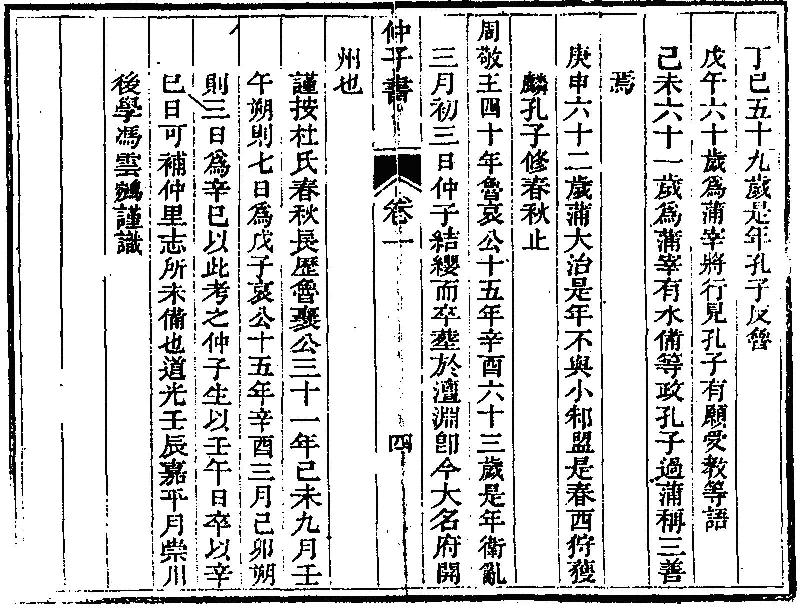 丁巳五十九歲是年孔子反魯
戊午六十歲爲蒲宰將行見孔子有願受教等語
己未六十一歲爲蒲宰有水備等政孔子過蒲稱三善
焉
庚申六十二歲蒲大治是年不與小邾盟是春西狩獲
麟孔子修春秋止
周敬王四十年魯哀公十五年辛酉六十三歲是年衛亂
三月初三日仲子結纓而卒塟於澶淵卽今大名府開
仲子書
卷一
四
州也
謹按杜氏春秋長歷魯襄公三十一年己未九月壬
午朔則七日爲戊子哀公十五年辛酉三月己卯朔
則三日爲辛巳以此考之仲子生以壬午日卒以辛
巳日可補仲里志所未備也道光壬辰嘉平月崇川
後學馮雲鵷謹識